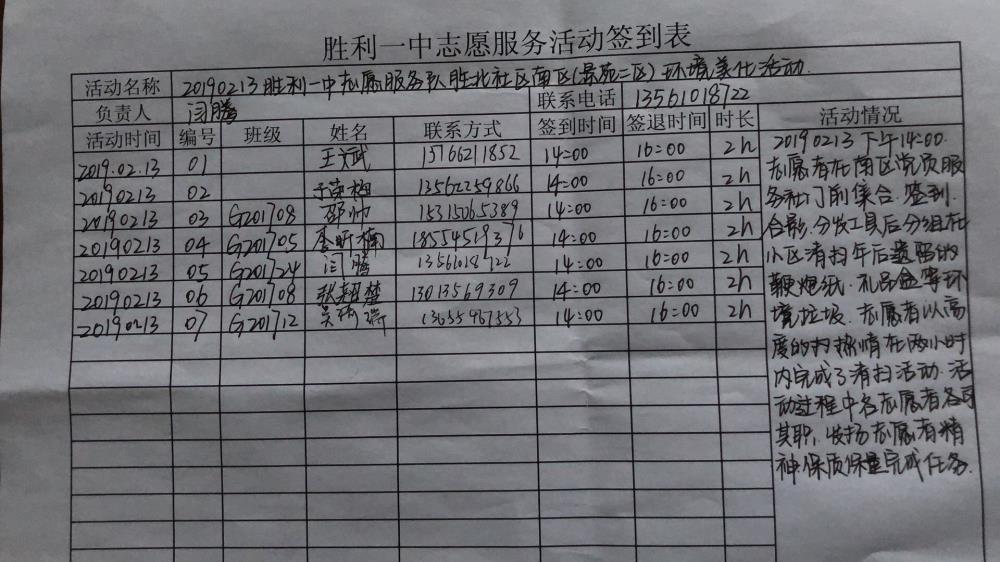 胜利一中志愿服务活动签到表
活动名称 20190213胜利一中志愿服务队胜北社区南区(景苑二区)环境美化活动.
负责人 闫腾 联系电话 13561018722
活动时间 编号 班级 姓名 联系方式 签到时间 签退时间 时长 活动情况
2019.02.13 01 王斌武 15766211852 14:00 16:00 2h
20190213 02 于荣梅 13562259866 14:00 16:00 2h
20190213 03 G201708 邵帅 15315065389 14:00 16:00 2h
20190213 04 G201705 李昕楠 18554519376 14:00 16:00 2h
20190213 05 G201724 闫腾 13561018722 14:00 16:00 2h
20190213 06 G201708 张翔楚 13013569309 14:00 16:00 2h
20190213 07 G201712 13655467553 14:00 16:00 2h
20190213下午14:00.
志愿者在南区党员服
务社门前集合.签到.
合影.分发工具后分组在
小区清扫年后遗留的
鞭炮纸.礼品盒等环
境垃圾.志愿者以高
度的热情在两小时
内完成了清扫活动.活
动过程中各志愿者各司
其职.发扬志愿者精
神.保质保量完成任务.